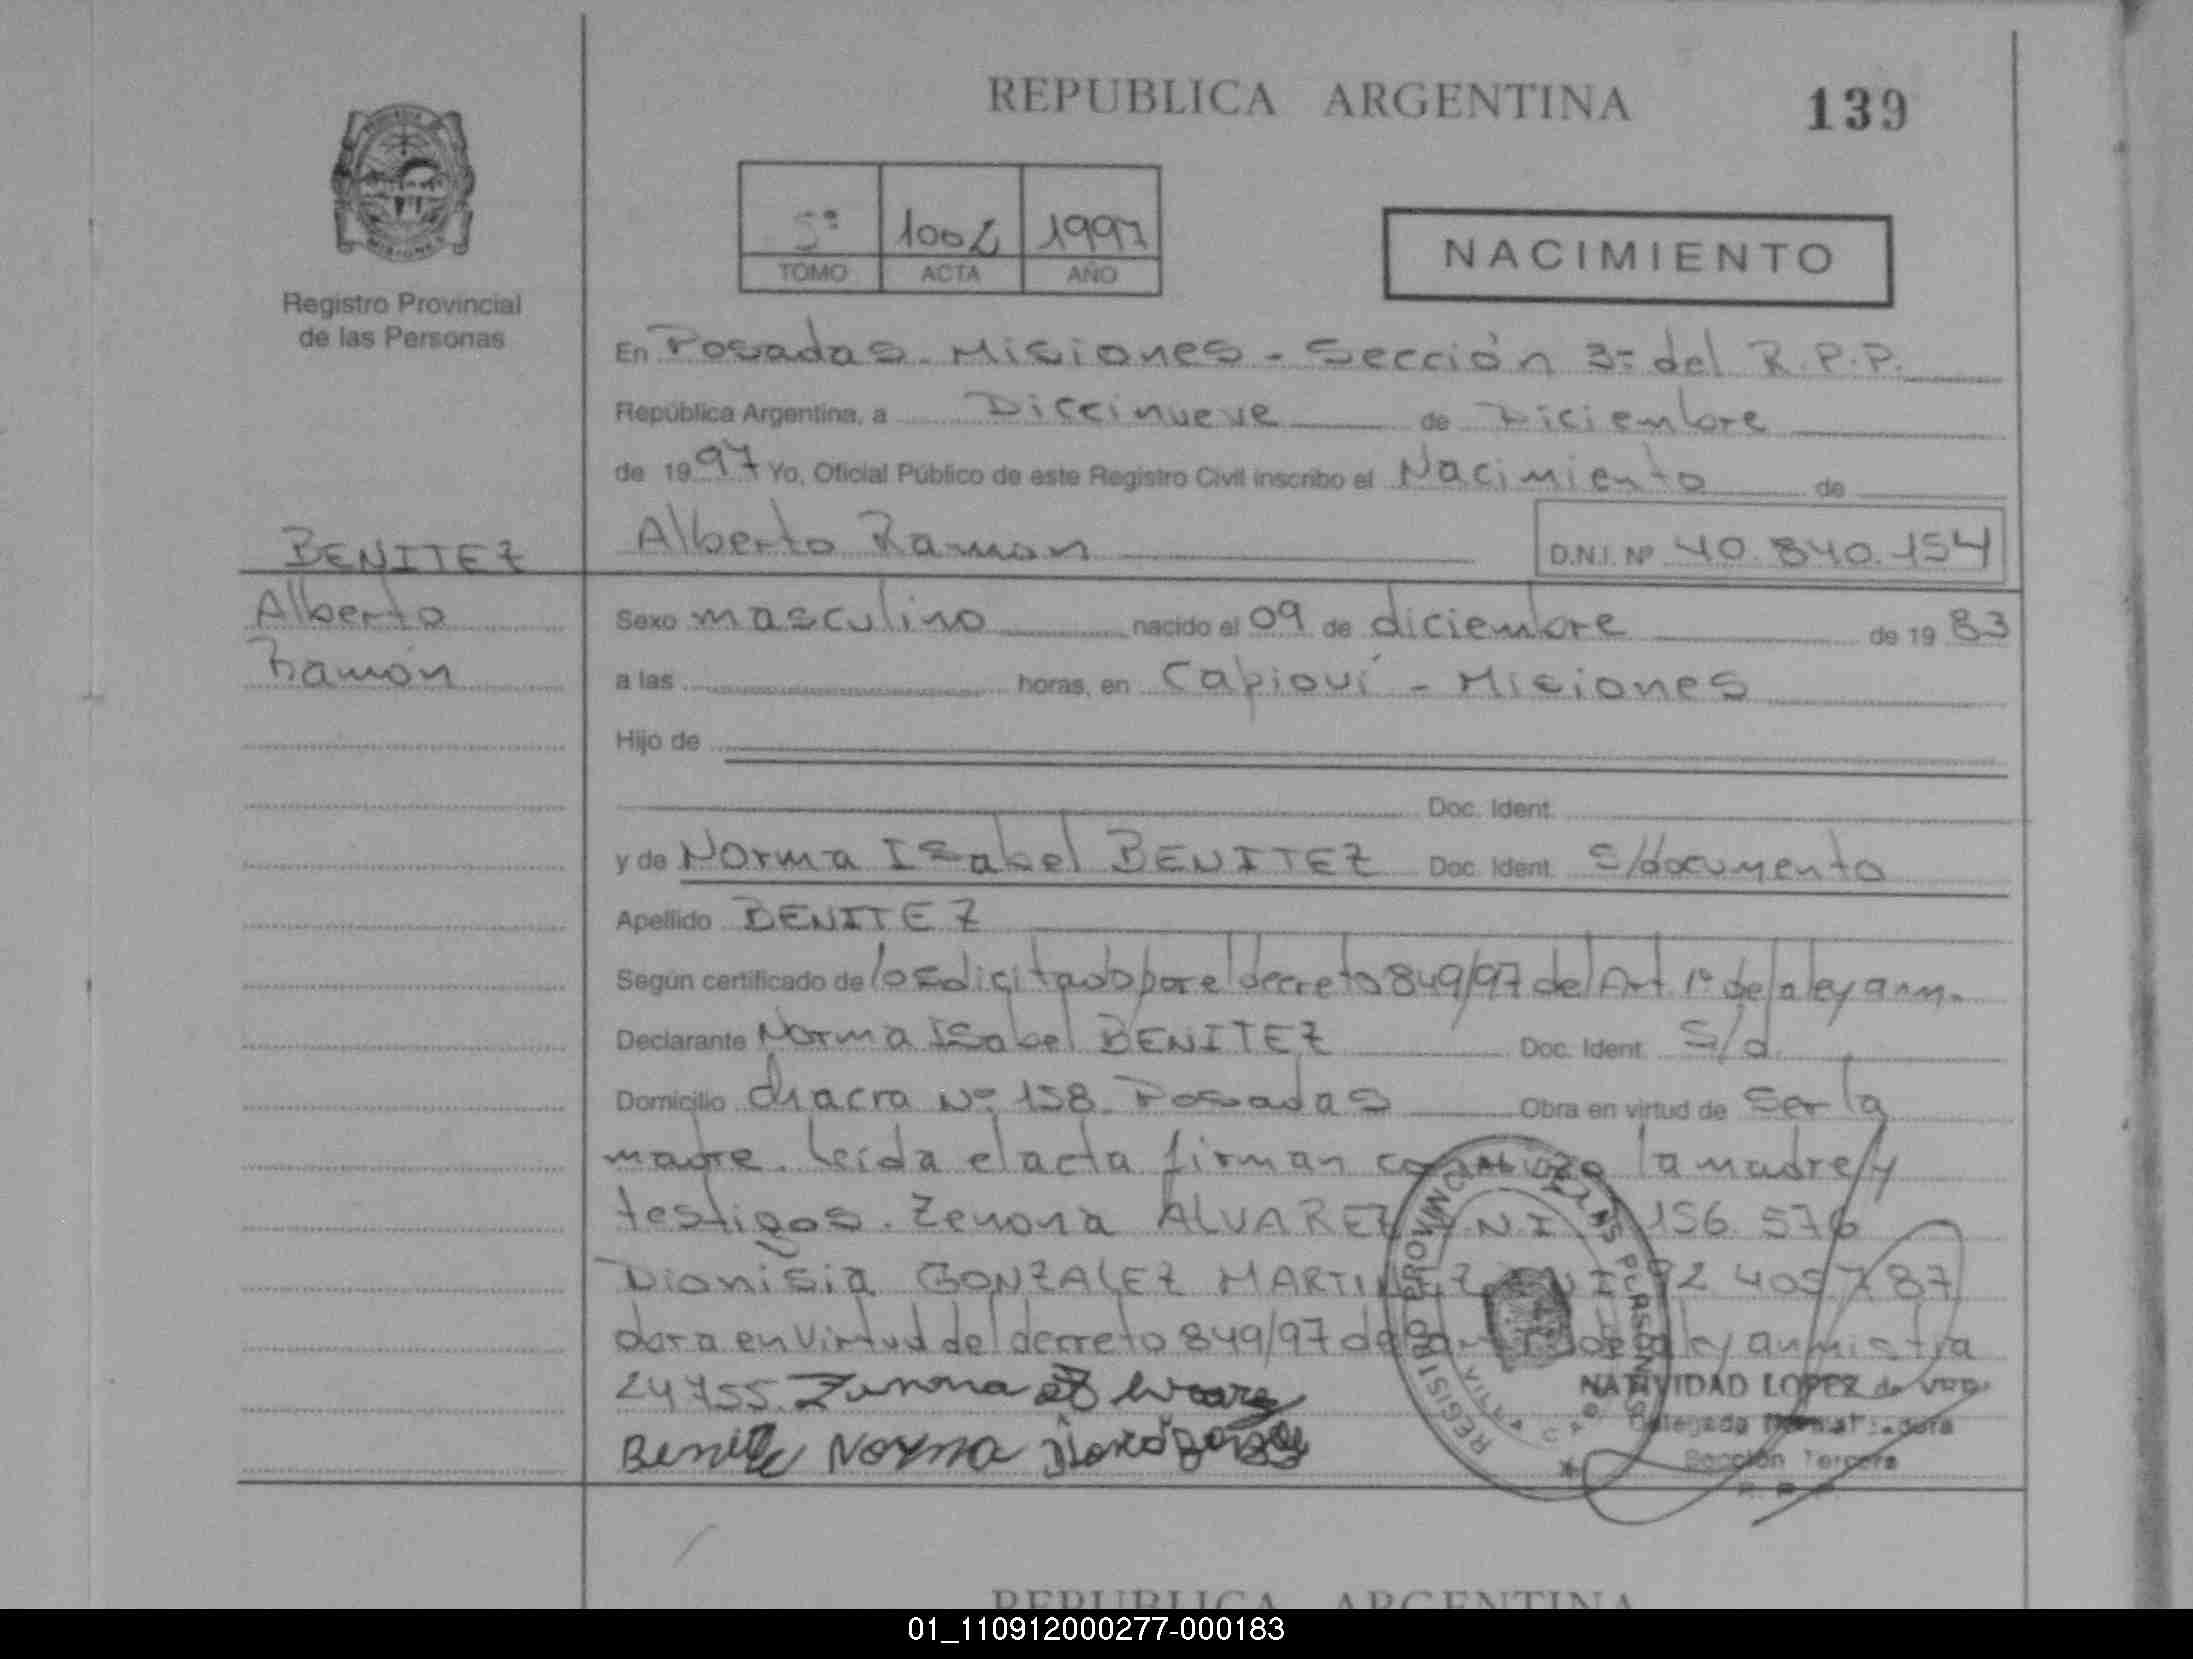 REPUBLICA ARGENTINA
139
5º 1002 1997
TOMO ACTA AÑO
NACIMIENTO
Registro Provincial
de las Personas
En Posadas - Misiones - Sección 3= del R.P.P.
República Argentina, a Diecinueve de Diciembre
de 1997 Yo, Oficial Público de este Registro Civil inscribo el Nacimiento de
BENITEZ
Alberto
Ramón
Alberto Ramon D.N.I. Nº 40.840.154
Sexo masculino nacido el 09 de diciembre de 1983
a las horas, en Capioví - Misiones
Hijo de
Doc. Ident.
y de Norma Isabel BENITEZ Doc. Ident. S/documento
Apellido BENITEZ
Según certificado de lo edicitado por el decreto 849/97 del Art. 1º de la ley anm.
Declarante Norma Isabel BENITEZ Doc. Ident. S/d.
Domicilio chacra Nº 158 Posadas Obra en virtud de ser la
madre. leída el acta firman la madre y
testigos. Zenona ALVAREZ D.N.I. 156.576
Dionisia GONZALEZ MARTINEZ 92.405787
obra en virtud del decreto 849/97 ley anmistia
24755. Zunona
Benitez Norma
REGISTRO PROVINCIAL DE LAS PERSONAS
NATIVIDAD LOPEZ de
Delegada
Sección Tercera
R. P. P.
REPUBLICA ARGENTINA
01_110912000277-000183